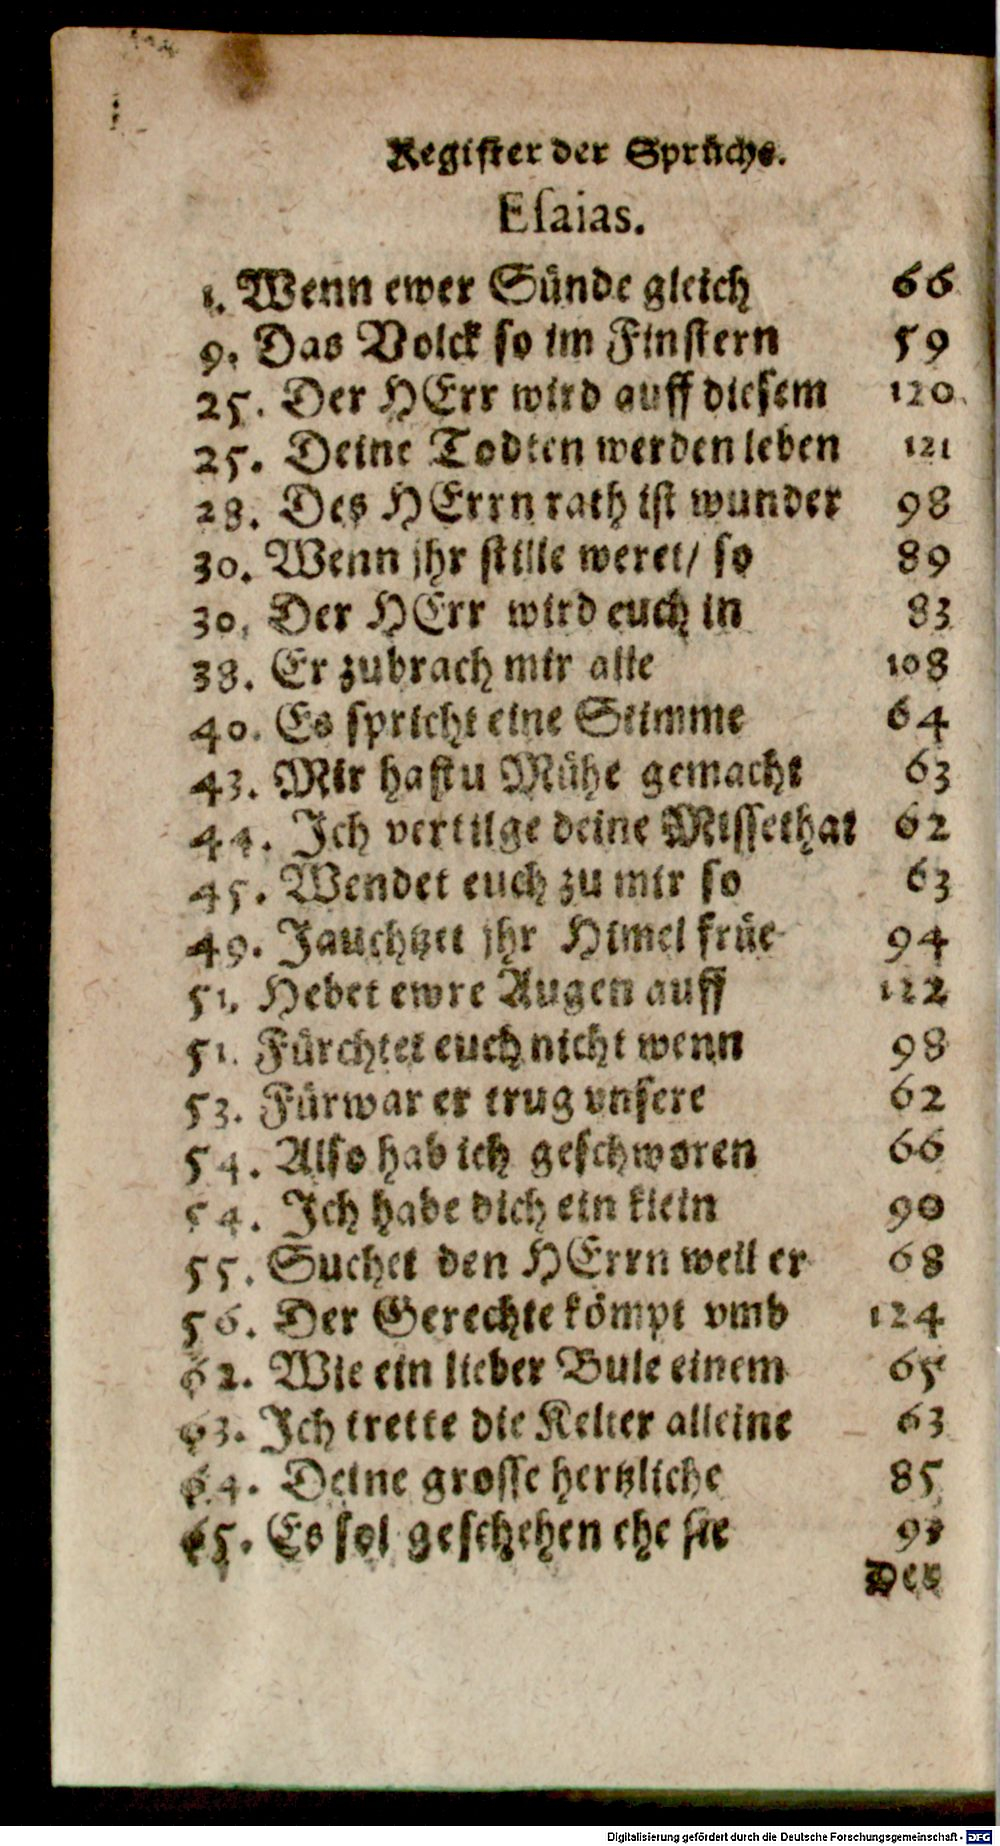 Register der Sprüche.
Esaias.
1. Wenn ewer Sünde gleich 66
9. Das Volck so im Finstern 59
25. Der HErr wird auff diesem 120
25. Deine Todten werden leben 121
28. Des HErrn rath ist wunder 98
30. Wenn jhr stille weret/ so 89
30. Der HErr wird euch in 83
38. Er zubrach mir alle 108
40. Es spricht eine Stimme 64
43. Mir hastu Mühe gemacht 63
44. Ich vertilge deine Missethat 62
45. Wendet euch zu mir so 63
49. Jauchtzet jhr Himel früe 94
51. Hebet ewre Augen auff 122
51. Fürchtet euch nicht wenn 98
53. Fürwar er trug vnsere 62
54. Also hab ich geschworen 66
54. Ich habe dich ein klein 90
55. Suchet den HErrn weil er 68
56. Der Gerechte kömpt vmb 124
62. Wie ein lieber Bule einem 65
63. Ich trette die Kelter alleine 63
64. Deine grosse hertzliche 85
65. Es sol geschehen ehe sie
Der
Digitalisierung gefördert durch die Deutsche Forschungsgemeinschaft - DFG